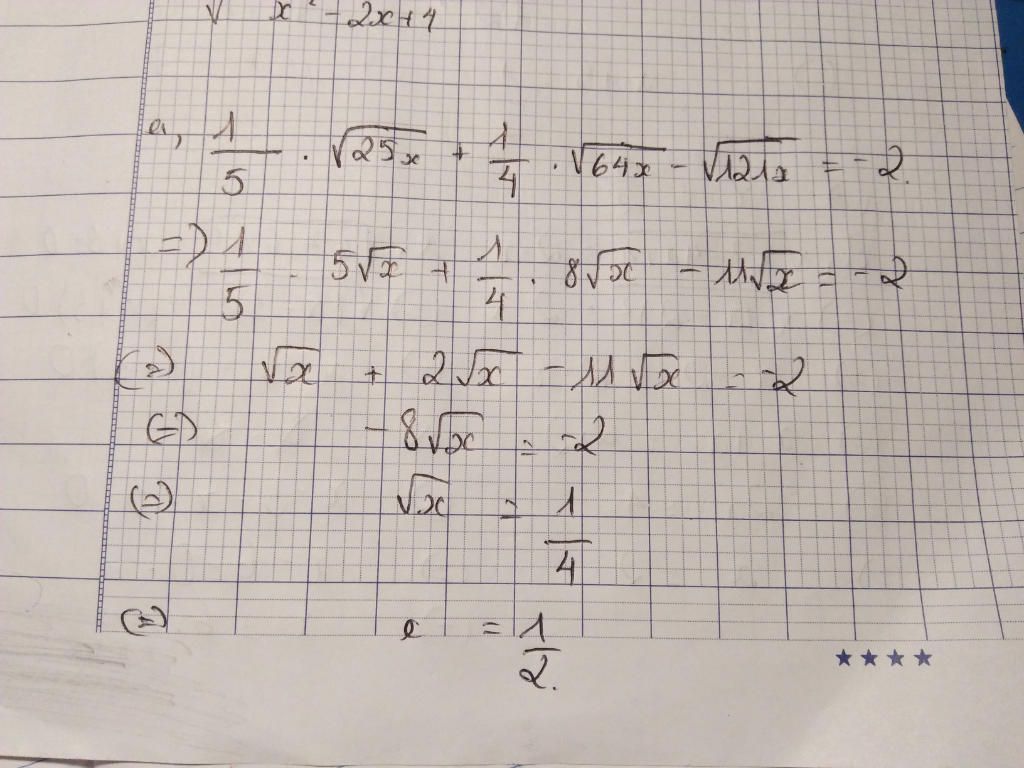 √ x² - 2x + 4
a, 1/5 . √25x + 1/4 . √64x - √121x = -2.
=) 1/5 . 5√x + 1/4 . 8√x - 11√x = -2
(=) √x + 2√x - 11√x = -2
(=) -8√x = -2
(=) √x = 1/4
(=) = 1/2.